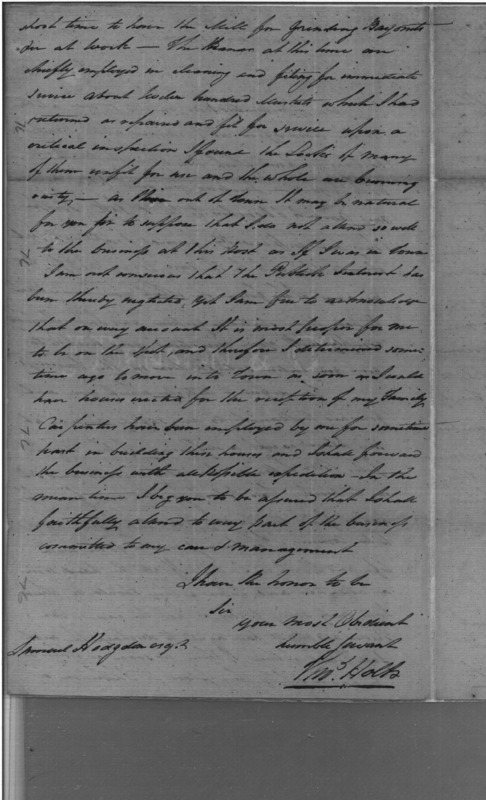 short time to have the Mill for Grinding Bayonets
for at Work — The Hands at this time are
chiefly employed in cleaning and filing for immediate
service about twelve hundred Muskets which I had
returned as repaired and fit for service upon a
critical inspection I found the Locks of many
of them unfit for use and the whole are becoming
rusty, — as I live out of town It may be natural
for you Sir to suppose that I do not attend so well
to the business at this Post as If I was in Town
I am not conscious that the Publick Interest has
been thereby neglected, yet I am free to acknowledge
that on every account It is most proper for me
to be on the spot, and therefore I determined some
time ago to move into Town as soon as I could
have houses erected for the reception of my Family
Carpenters have been employed by me for sometime
past in building these houses and I shall forward
the business with all possible expedition — In the
mean time I beg you to be assured that I shall
faithfully attend to every part of the business
committed to my care & management
I have the honor to be
Sir
your most Obedient
humble servant
Samuel Hodgdon esqr.
Thos. Holt